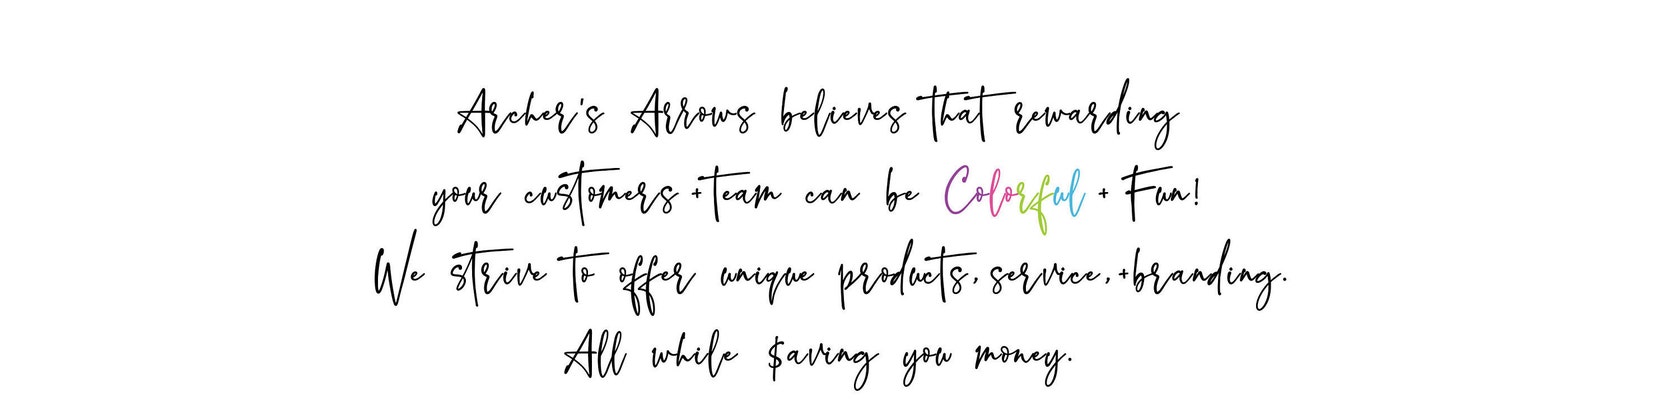 Archer's Arrows believes that rewarding
your customers + team can be Colorful + Fun!
We strive to offer unique products, service, + branding.
All while $aving you money.